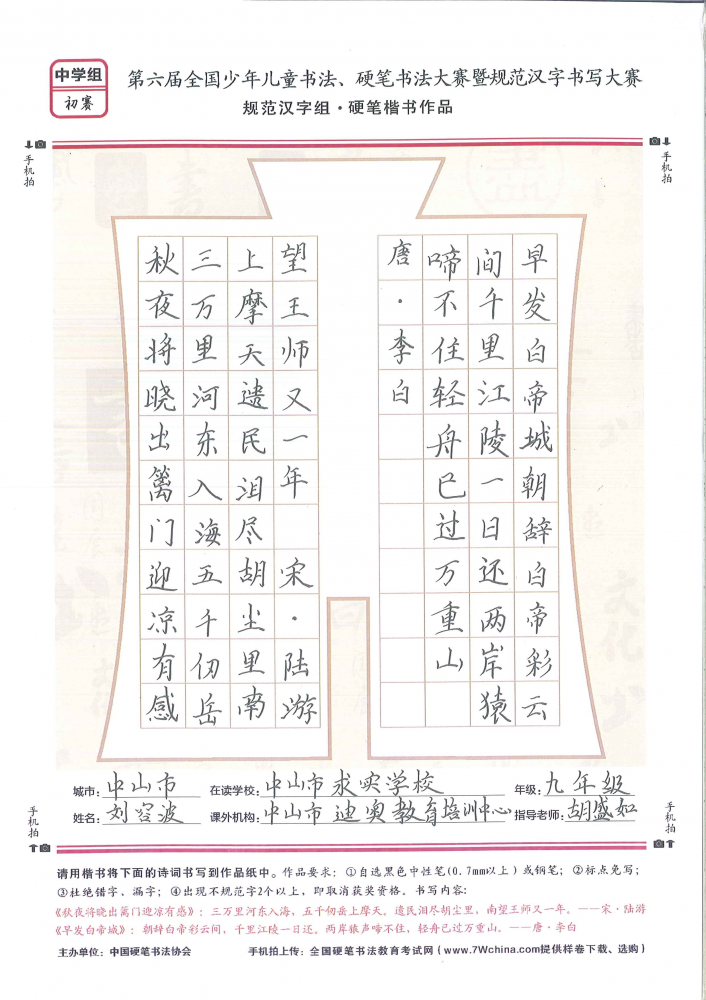 中学组
初赛
第六届全国少年儿童书法、硬笔书法大赛暨规范汉字书写大赛
规范汉字组·硬笔楷书作品
手机拍
手机拍
秋夜将晓出篱门迎凉有感
三万里河东入海五千仞岳
上摩天遗民泪尽胡尘里南
望王师又一年 宋·陆游
早发白帝城朝辞白帝彩云
间千里江陵一日还两岸猿
啼不住轻舟已过万重山
唐·李白
城市：中山市 在读学校：中山市求实学校 年级：九年级
姓名：刘容波 课外机构：中山市迪奥教育培训中心 指导老师：胡盛如
手机拍
手机拍
请用楷书将下面的诗词书写到作品纸中。作品要求：①自选黑色中性笔(0.7mm以上)或钢笔；②标点免写；
③杜绝错字、漏字；④出现不规范字2个以上，即取消获奖资格。书写内容：
《秋夜将晓出篱门迎凉有感》：三万里河东入海，五千仞岳上摩天。遗民泪尽胡尘里，南望王师又一年。——宋·陆游
《早发白帝城》：朝辞白帝彩云间，千里江陵一日还。两岸猿声啼不住，轻舟已过万重山。——唐·李白
主办单位：中国硬笔书法协会 手机拍上传：全国硬笔书法教育考试网(www.7Wchina.com提供样卷下载、选购)